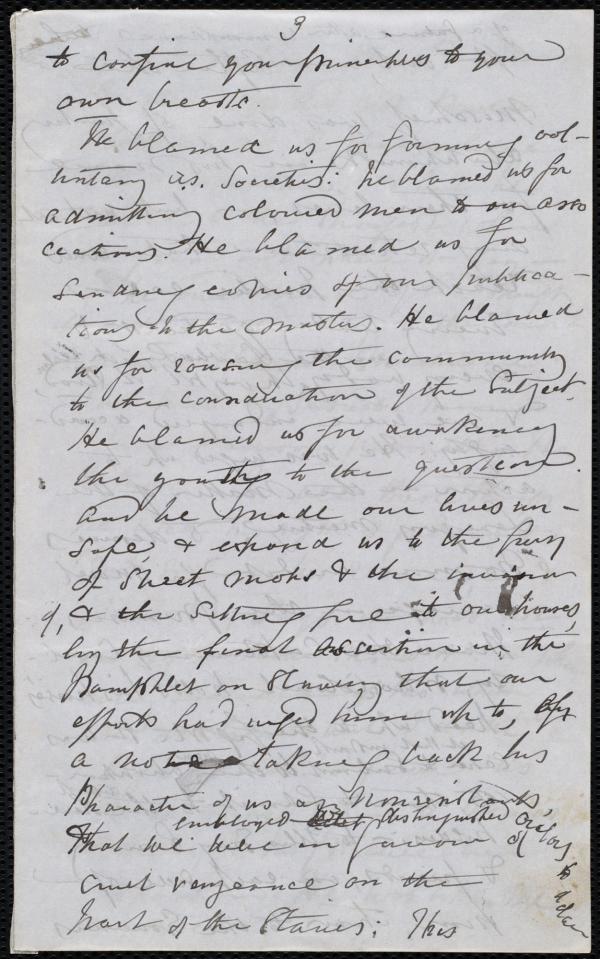 3
to confine your principles to your
own breasts.
He blamed us for forming vol-
untary a.s. Societies: he blamed us for
admitting coloured men to our asso
ciations. He blamed us for
sending copies of our publica-
tions to the masters. He blamed
us for rousing the community
to the consideration of the subject.
He blamed us for awakening
the youth to the question.
and he made our lives un-
safe, & exposed us to the fury
of street mobs & the invasion
of, & the setting fire to our houses,
by the final assertion in the
Pamphlet on Slavery that our
efforts had urged him up to, by
a note taking back his
Character of us as Nonresistants,
employed distinguished orators to
that we were in favour of
cruel vengeance on the
part of the Slaves: This